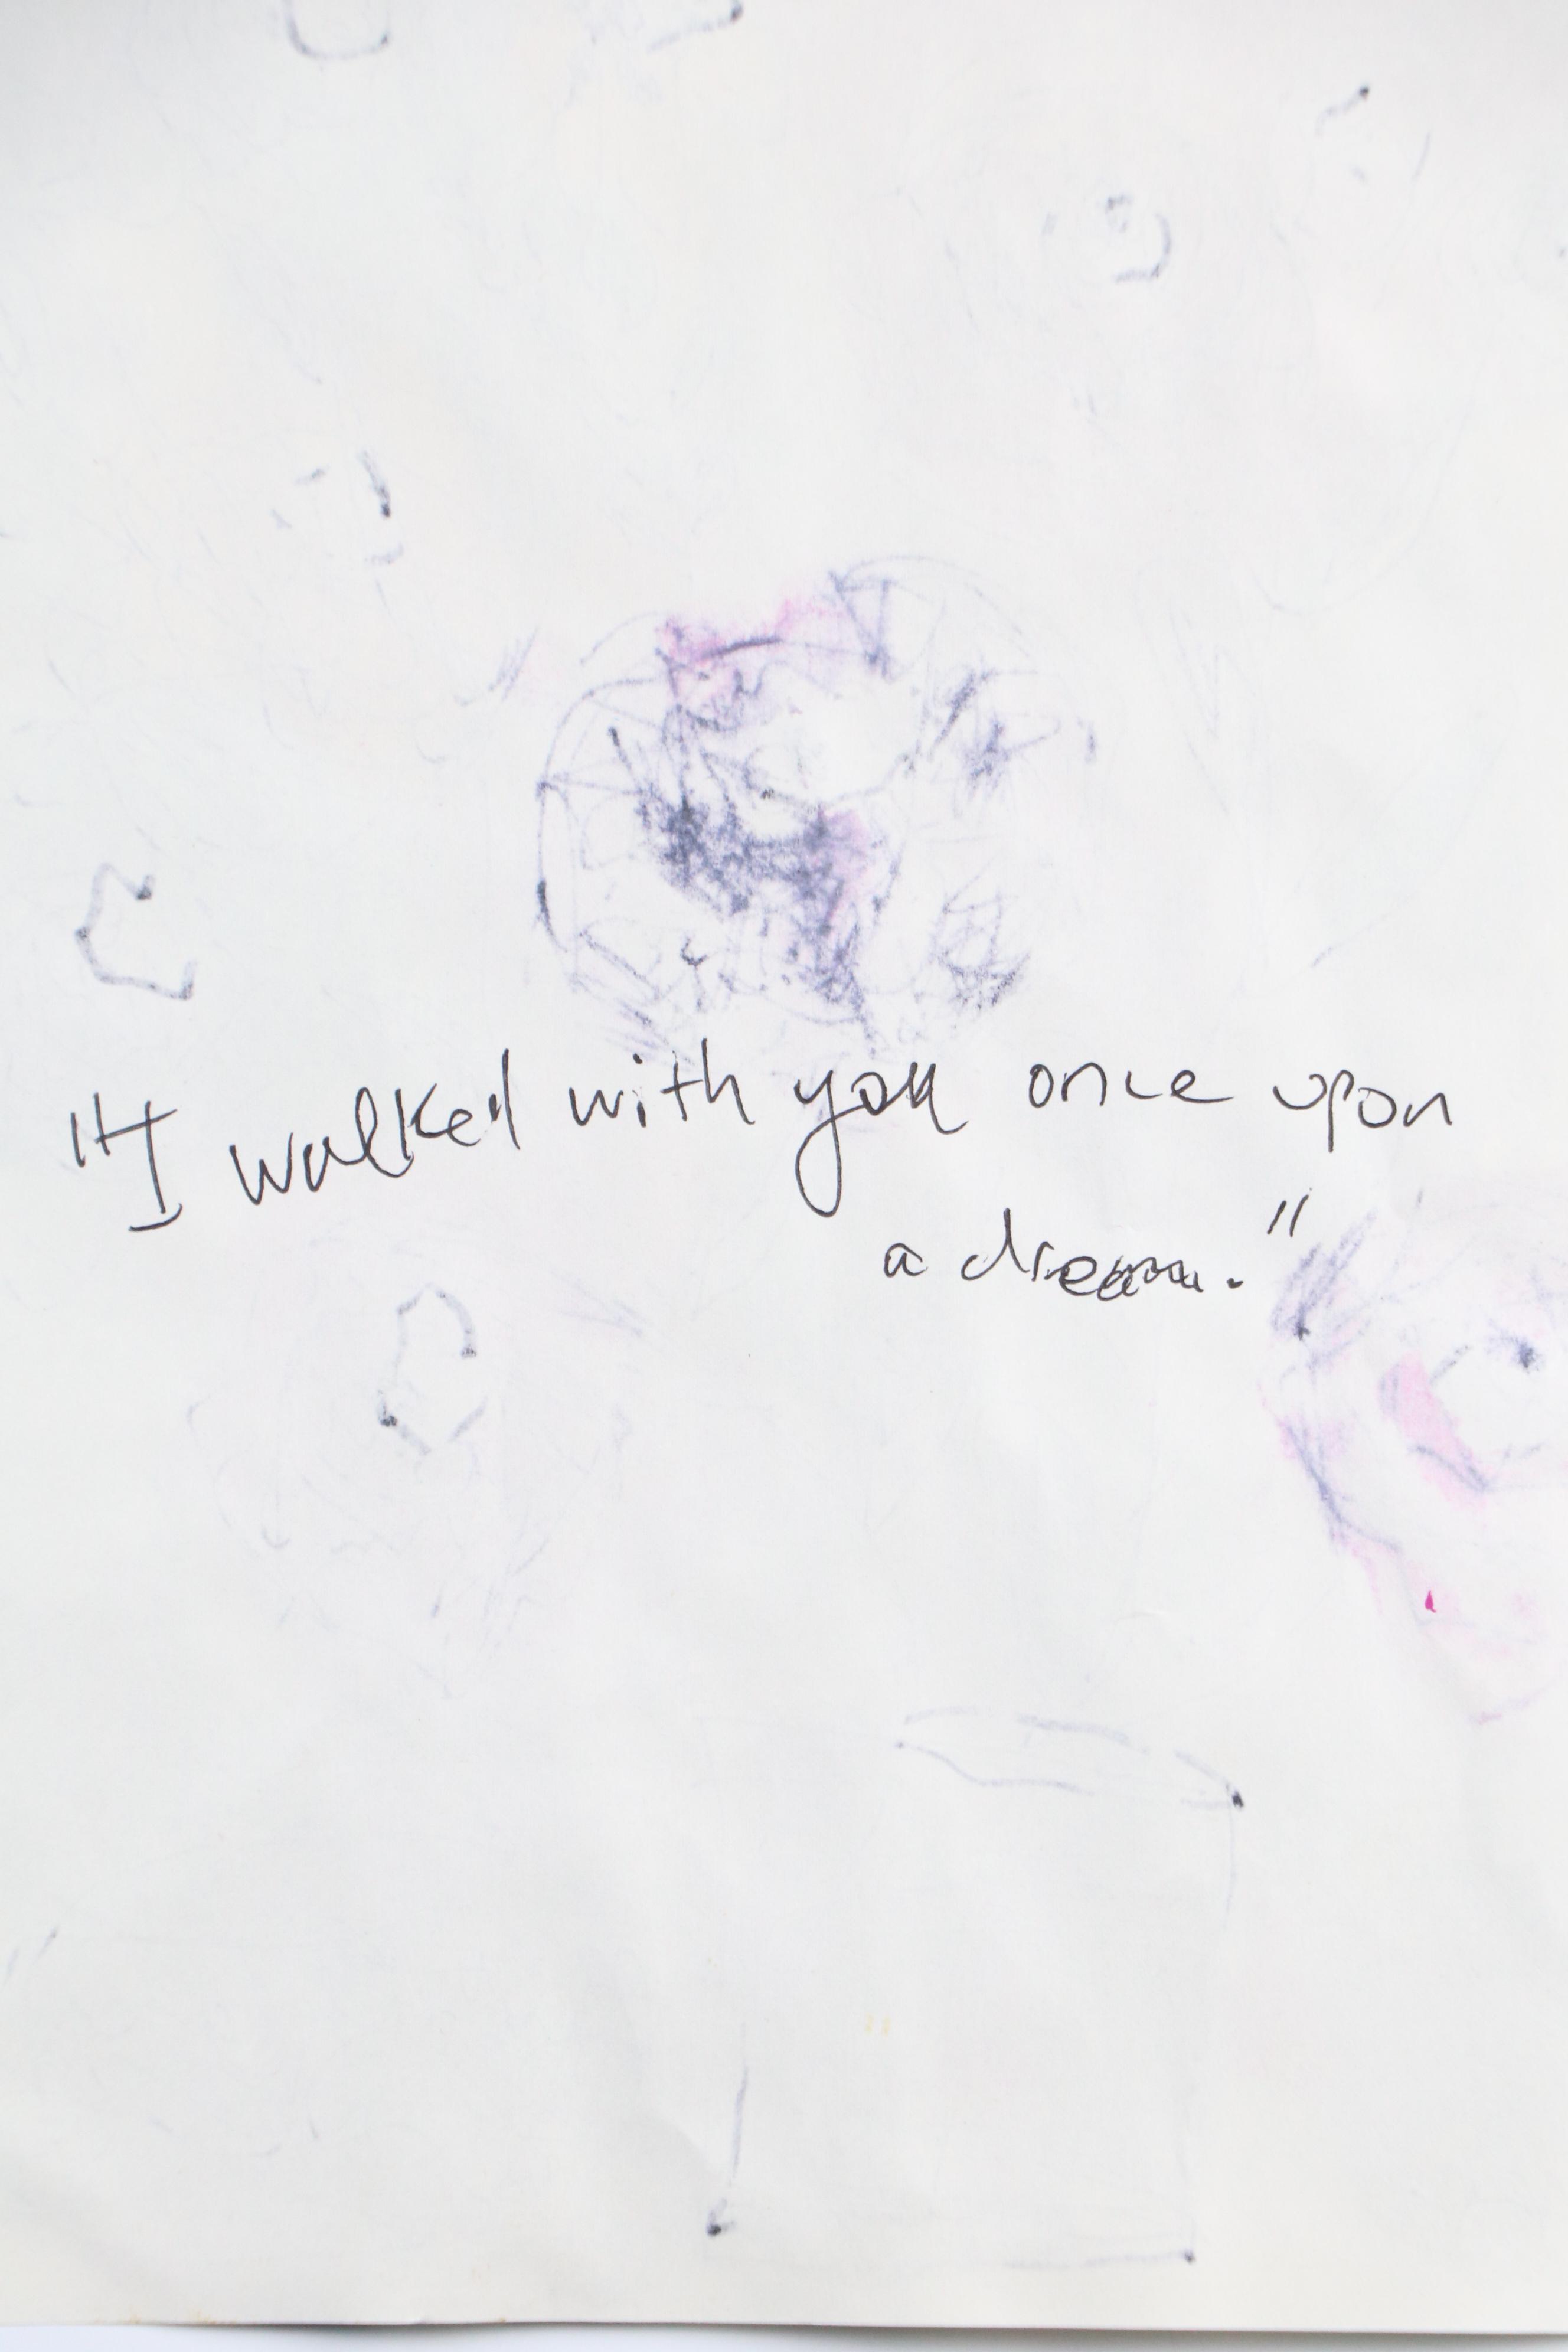 "I walked with you once upon
a dream."